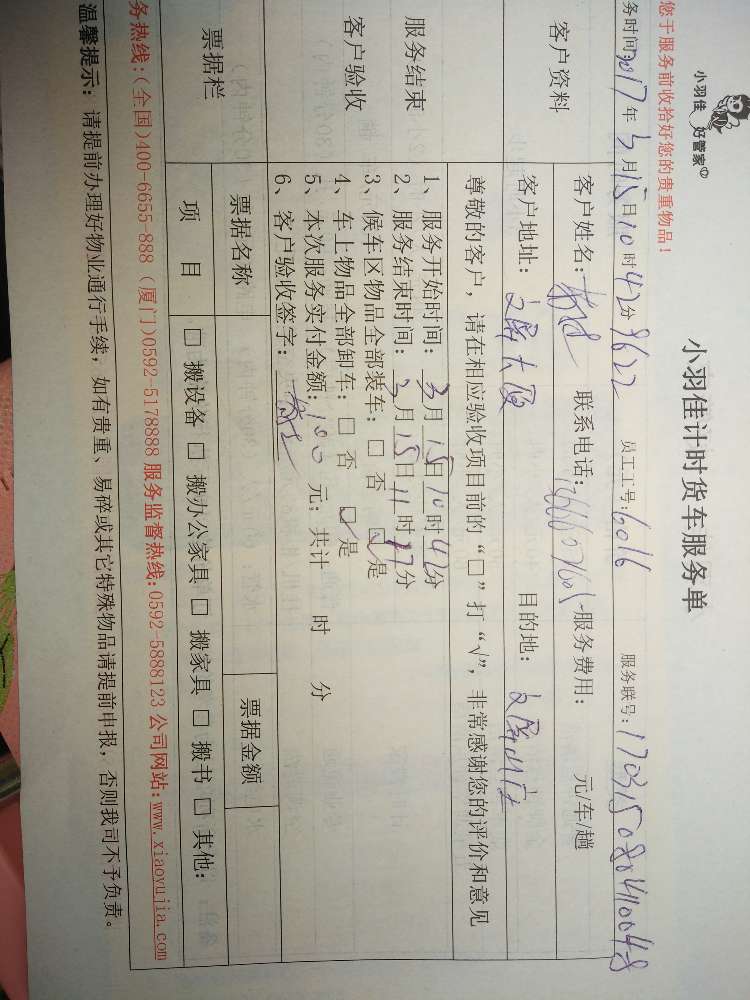 小羽佳 好管家
小羽佳计时货车服务单
您于服务前收拾好您的贵重物品！
务时间:2017年3月15日10时42分 9622 员工工号:6016 服务联号:
客户资料
客户姓名: 联系电话: 服务费用: 元/车/趟
客户地址: 文屏大厦 目的地: 文屏山庄
服务结束
客户验收
尊敬的客户，请在相应验收项目前的“□”打“√”，非常感谢您的评价和意见
1、服务开始时间: 3月15日10时42分
2、服务结束时间: 3月15日11时27分
3、候车区物品全部装车: □ 否 ☑ 是
4、车上物品全部卸车: □ 否 ☑ 是
5、本次服务实付金额: 100 元; 共计 时 分
6、客户验收签字:
票据栏
票据名称 票据金额
项 目 □ 搬设备 □ 搬办公家具 □ 搬家具 □ 搬书 □ 其他:
务热线:(全国)400-6655-888 (厦门)0592-5178888 服务监督热线:0592-5888123 公司网站:www.xiaoyujia.com
温馨提示: 请提前办理好物业通行手续, 如有贵重、易碎或其它特殊物品请提前申报, 否则我司不予负责。